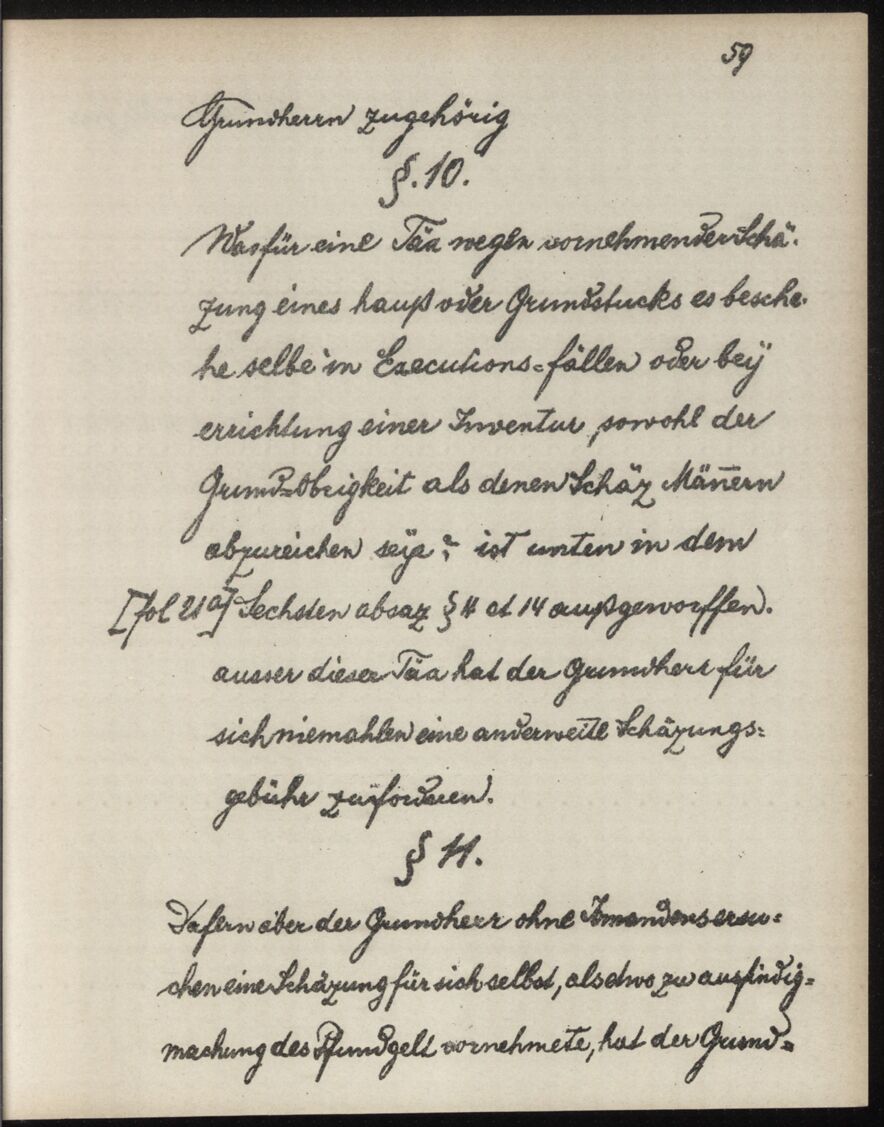 59
Grundherrn zugehörig
§. 10.
Was für eine Täx wegen vornehmender Schä-
zung eines hauß oder Grundstucks es besche-
he selbe in Executions=fällen oder bey
errichtung einer Inventur, sowohl der
Grund=Obrigkeit als denen Schäz Männern
abzureichen seye? ist unten in dem
[fol 21a] Sechsten absaz § 11 et 14 außgeworffen.
ausser dieser Täx hat der Grundherr für
sich niemahlen eine anderweite Schäzungs=
gebühr zu forderen.
§ 11.
Dafern aber der Grundherr ohne Jmandens ersu=
chen eine Schäzung für sich selbst, als etwo zu ausfindig=
machung des Pfundgelt vornehmete, hat der Grund=